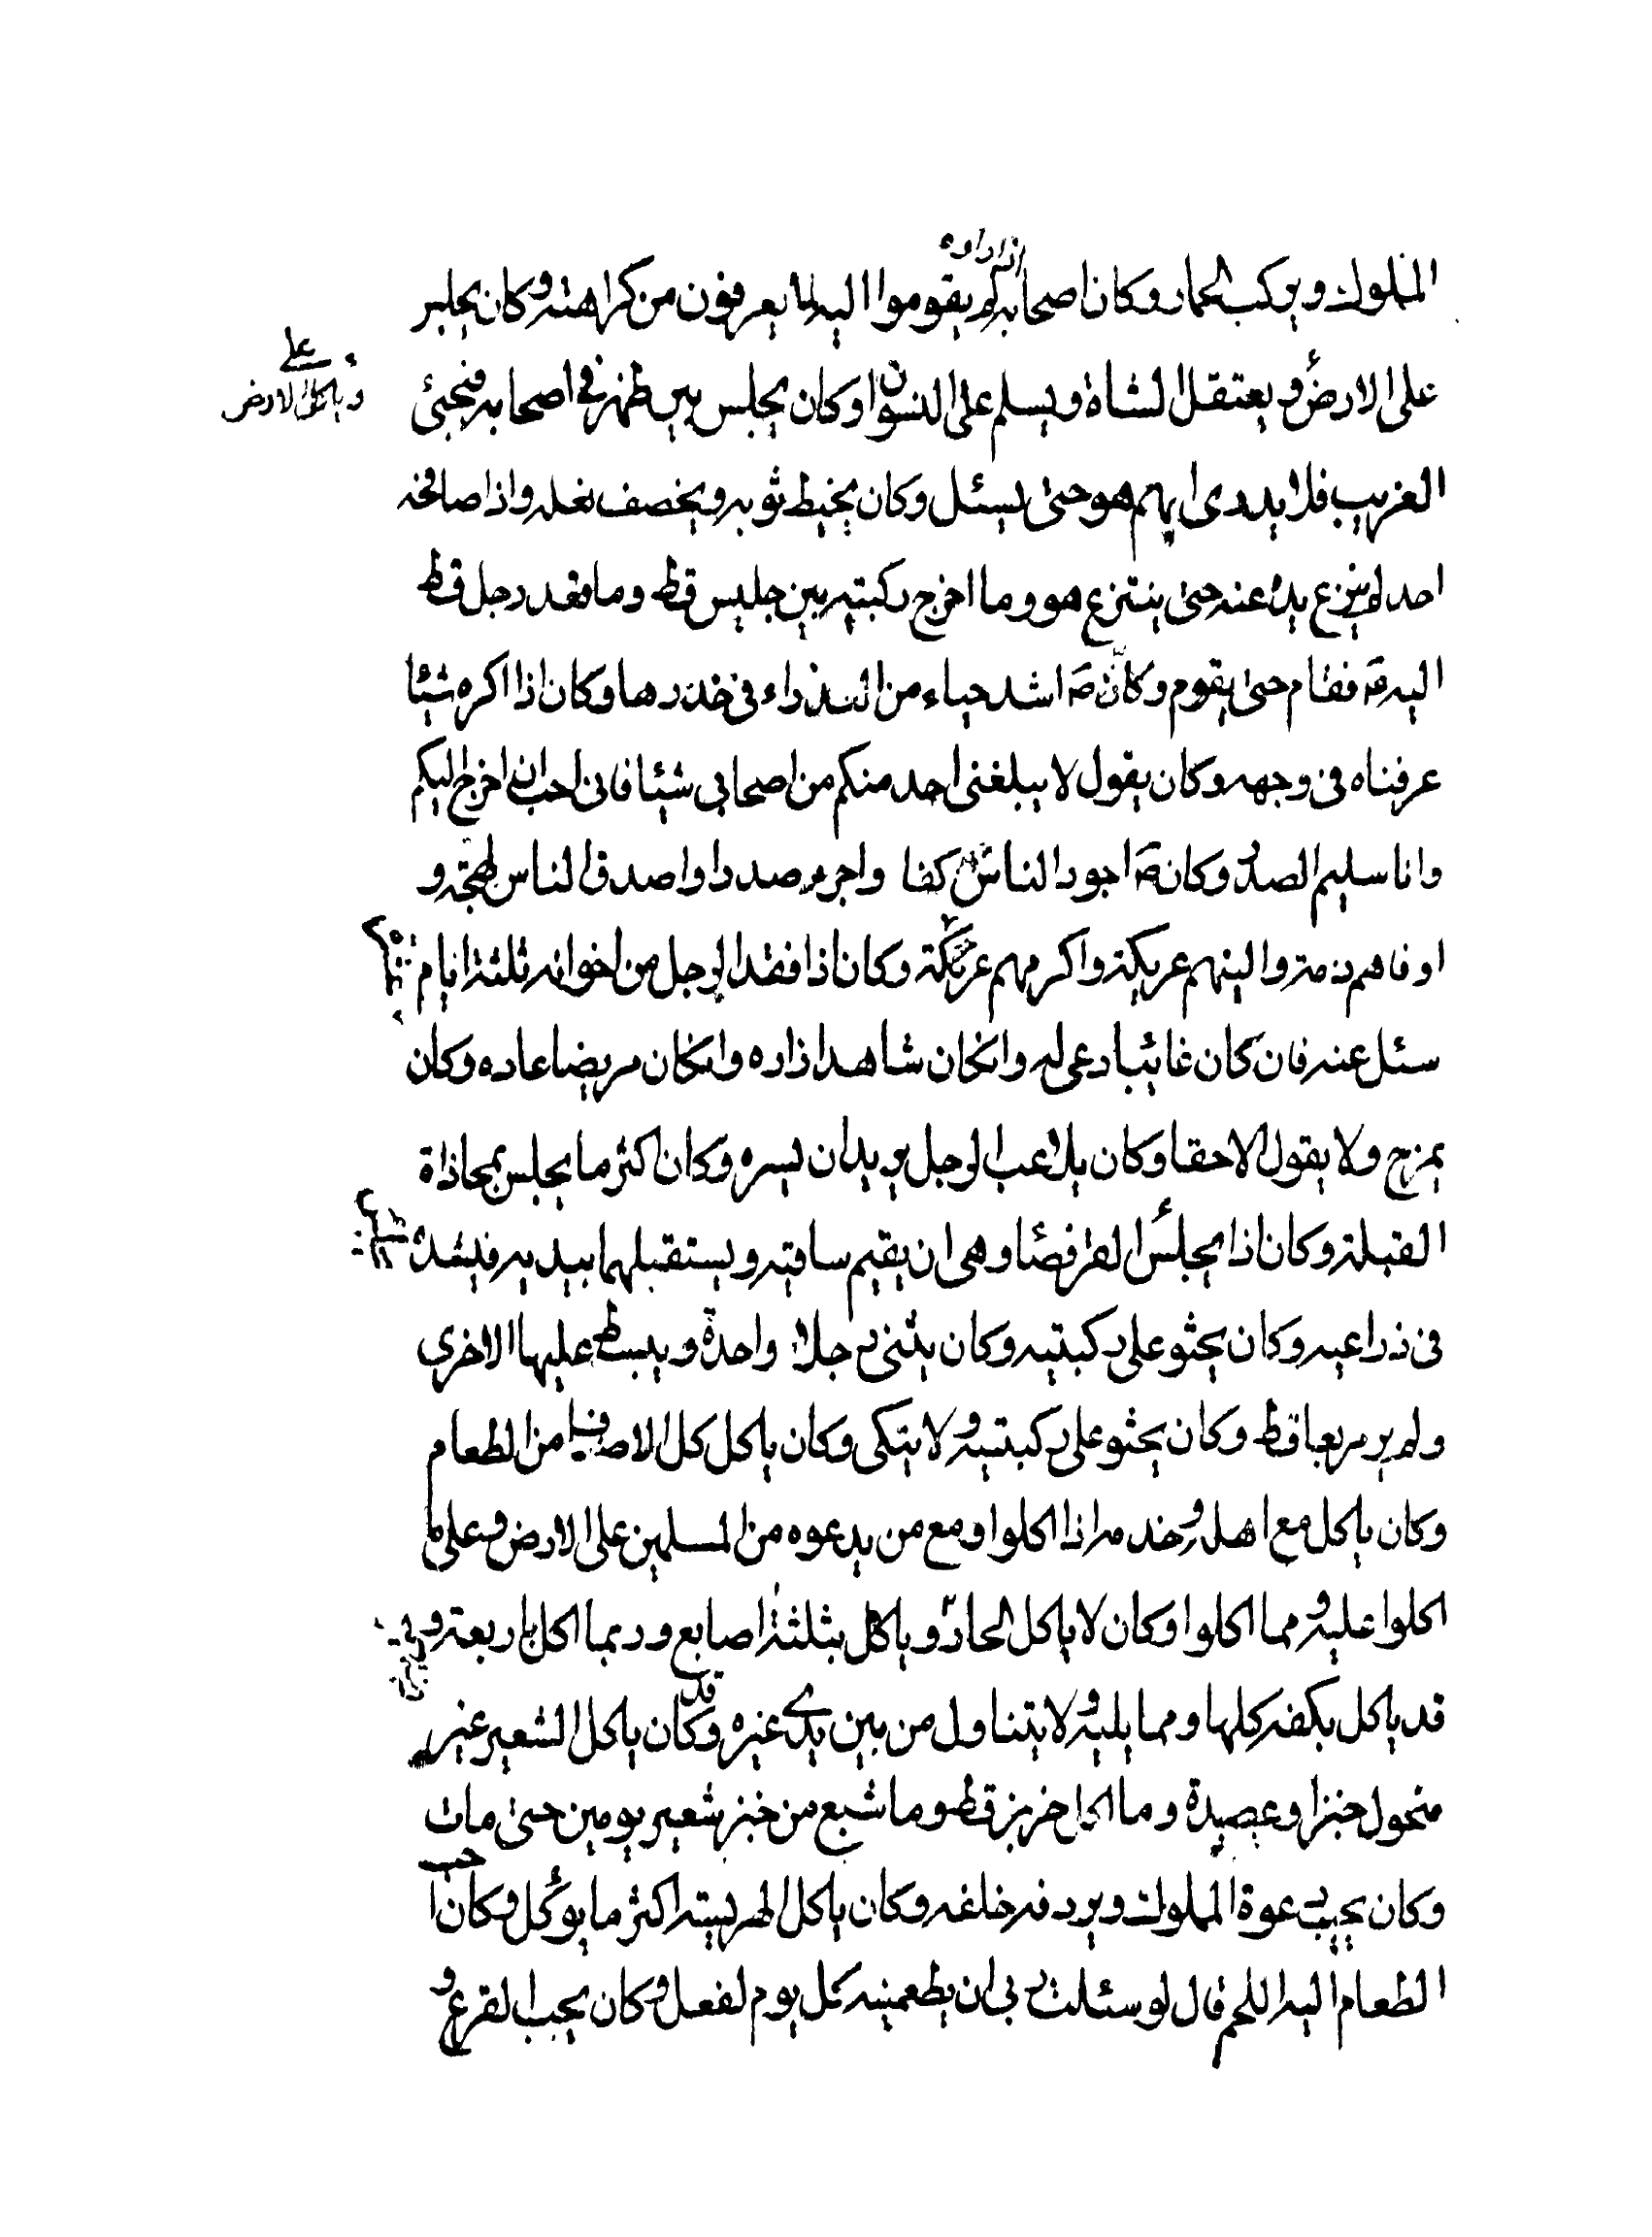 المملوك ويركب الحمار وكان اصحابه اذا راوه لم يقوموا اليه لما يعرفون من كراهته وكان يجلس
على الارض ويعتقل الشاة ويسلم على النسوان وكان يجلس بين ظهرني اصحابه فيجيئ
وياكل على الارض
الغريب فلا يدرى ايهم هو حتى يسئل وكان يخيط ثوبه ويخصف نعله واذا صافحه
احد لم ينزع يده عنه حتى ينتزع هو وما اخرج ركبتيه بين جليس قط وما قعد رجل قط
اليه ص فقام حتى يقوم وكان ص اشد حياء من العذراء فى خدرها وكان اذا اكره شيئا
عرفناه فى وجهه وكان يقول لا يبلغنى احد منكم من اصحابي شيئا فانى احب ان اخرج اليكم
وانا سليم الصدر وكان ص اجود الناس كفا واجرء صدرا واصدق الناس لهجة و
اوفاهم ذمة والينهم عريكة واكرمهم عريكة وكان اذا فقد الرجل من اخوانه ثلثة ايام
سئل عنه فان كان غائبا دعى له وانكان شاهدا زاره وانكان مريضا عاده وكان
يمزح ولا يقول الا حقا وكان يلاعب الرجل يريد ان يسره وكان اكثر ما يجلس بمحاذاة
القبلة وكان اذا يجلس القرفصا وهى ان يقيم ساقيه ويستقبلهما بيديه فيشده
فى ذراعيه وكان يجثو على ركبتيه وكان يثنى رجلا واحدة ويبسط عليها الاخرى
ولم ير مربعا قط وكان يجثو على ركبتيه ولا يتكى وكان ياكل كل الاصناف من الطعام
وكان ياكل مع اهله وخدمه اذا اكلوا ومع من يدعوه من المسلمين على الارض وعلى ما
اكلوا عليه ومما اكلوا وكان لا ياكل الحار وياكل بثلثة اصابع وربما اكل باربعة و
قد ياكل بكفه كلها ومما يليه ولا يتناول من بين يدي غيره وقد كان ياكل الشعير غير
منخول خبزا وعصيدة وما اكل خبز بر قط وما شبع من خبز شعير يومين حتى مات
وكان يجيب دعوة المملوك ويردفه خلفه وكان ياكل الهريسة اكثر ما يؤكل وكان احب
الطعام اليه اللحم قال لو سئلت ربى ان يطعمنيه كل يوم لفعل وكان يحب القرع و